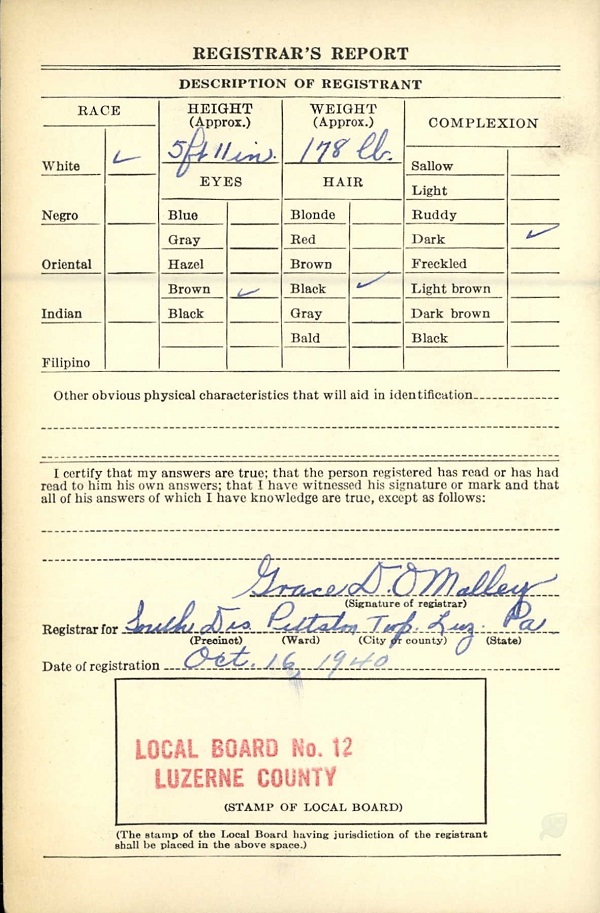 REGISTRAR'S REPORT
DESCRIPTION OF REGISTRANT
RACE
HEIGHT
(Approx.)
WEIGHT
(Approx.)
COMPLEXION
5 ft 11 in.
178 lb.
White ✓
Negro
Oriental
Indian
Filipino
EYES
Blue
Gray
Hazel
Brown ✓
Black
HAIR
Blonde
Red
Brown
Black ✓
Gray
Bald
Sallow
Light
Ruddy
Dark ✓
Freckled
Light brown
Dark brown
Black
Other obvious physical characteristics that will aid in identification
I certify that my answers are true; that the person registered has read or has had
read to him his own answers; that I have witnessed his signature or mark and that
all of his answers of which I have knowledge are true, except as follows:
Grace D. O'Malley
(Signature of registrar)
Registrar for South Dis Pittston Twp. Luz. Pa
(Precinct) (Ward) (City or county) (State)
Date of registration Oct. 16, 1940
LOCAL BOARD No. 12
LUZERNE COUNTY
(STAMP OF LOCAL BOARD)
(The stamp of the Local Board having jurisdiction of the registrant
shall be placed in the above space.)